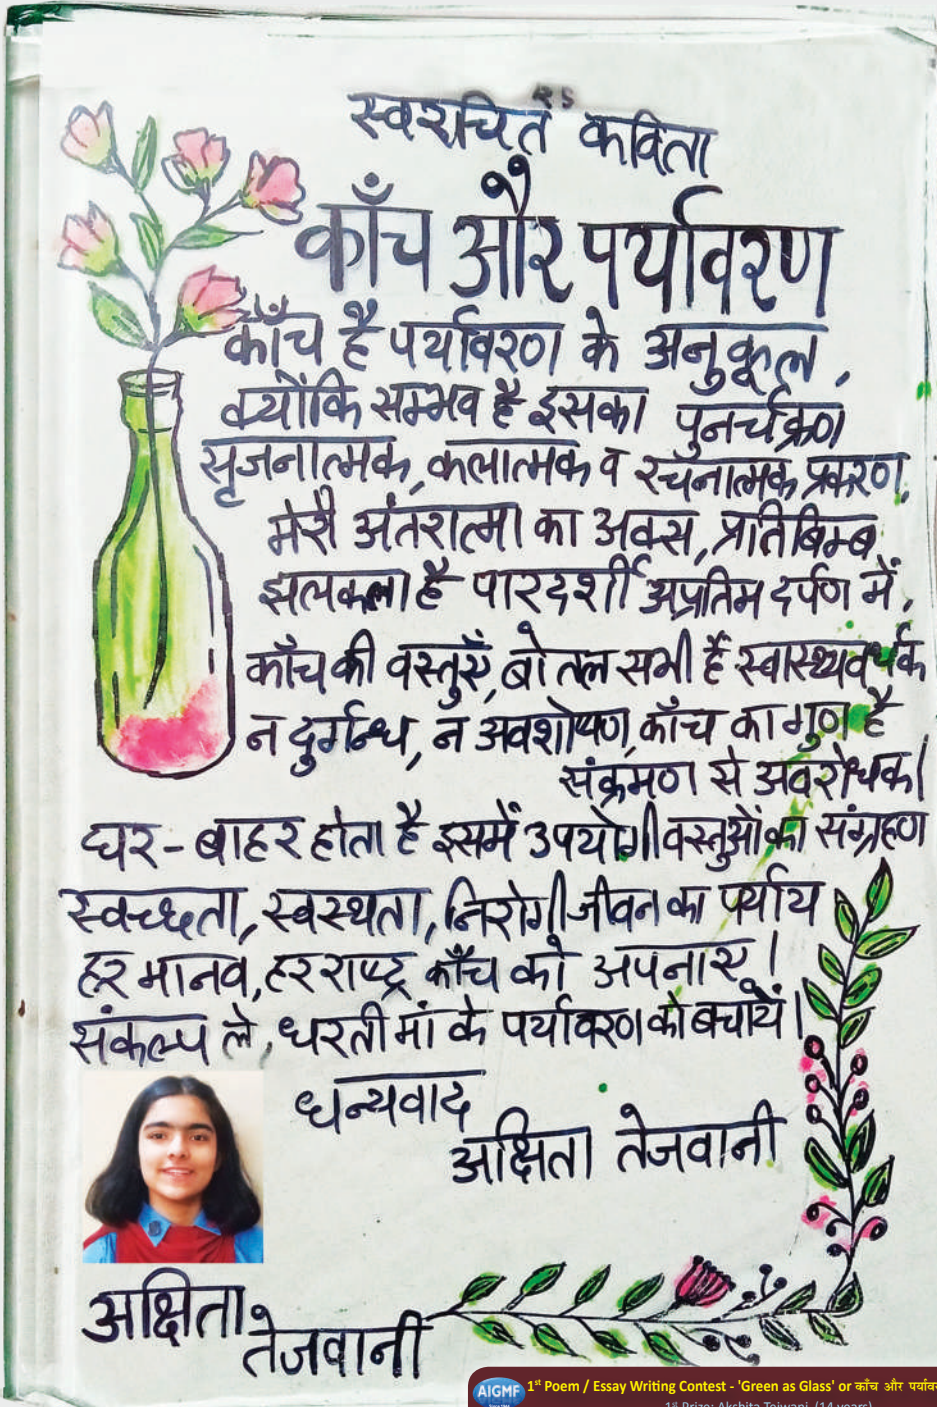 स्वरचित कविता
काँच और पर्यावरण
काँच है पर्यावरण के अनुकूल,
क्योंकि सम्भव है इसका पुनर्चक्रण
सृजनात्मक, कलात्मक व रचनात्मक प्रकरण,
मेरी अंतरात्मा का अक्स, प्रतिबिम्ब
झलकला है पारदर्शी अप्रतिम दर्पण में,
काँच की वस्तुएँ, बोतल सभी हैं स्वास्थ्यवर्धक
न दुर्गन्ध, न अवशोषण, काँच का गुण है
संक्रमण से अवरोधक।
घर-बाहर होता है इसमें उपयोगी वस्तुओं का संग्रहण
स्वच्छता, स्वस्थता, निरोगी जीवन का पर्याय
हर मानव, हर राष्ट्र काँच को अपनाए!
संकल्प ले, धरती मां के पर्यावरण को बचायें।
धन्यवाद
अक्षिता तेजवानी
अक्षिता
तेजवानी
AIGMF
1st Poem / Essay Writing Contest - 'Green as Glass' or काँच और
1st Prize: Akshita Tejwani, (14 years)